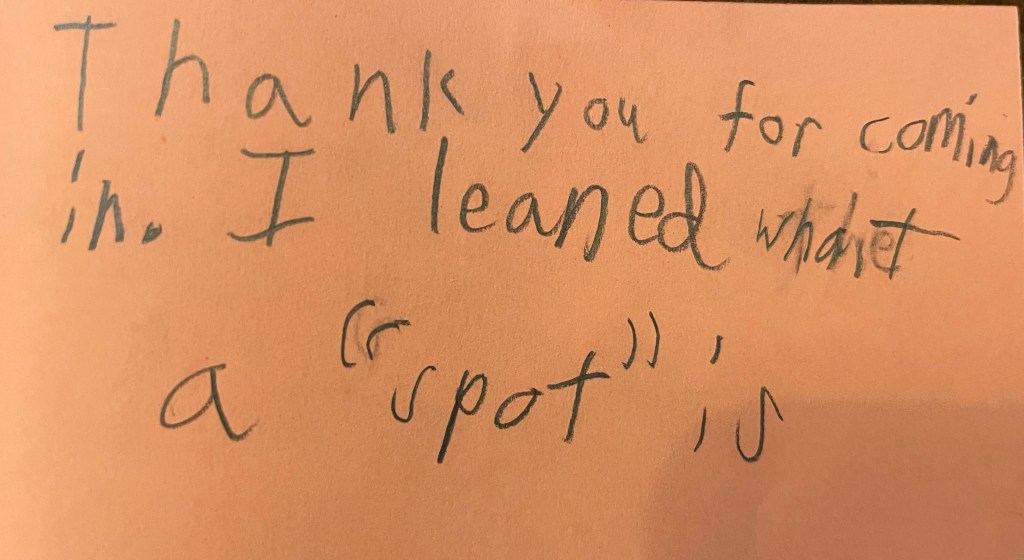 Thank you for coming
in. I leaned what
a "spot" is